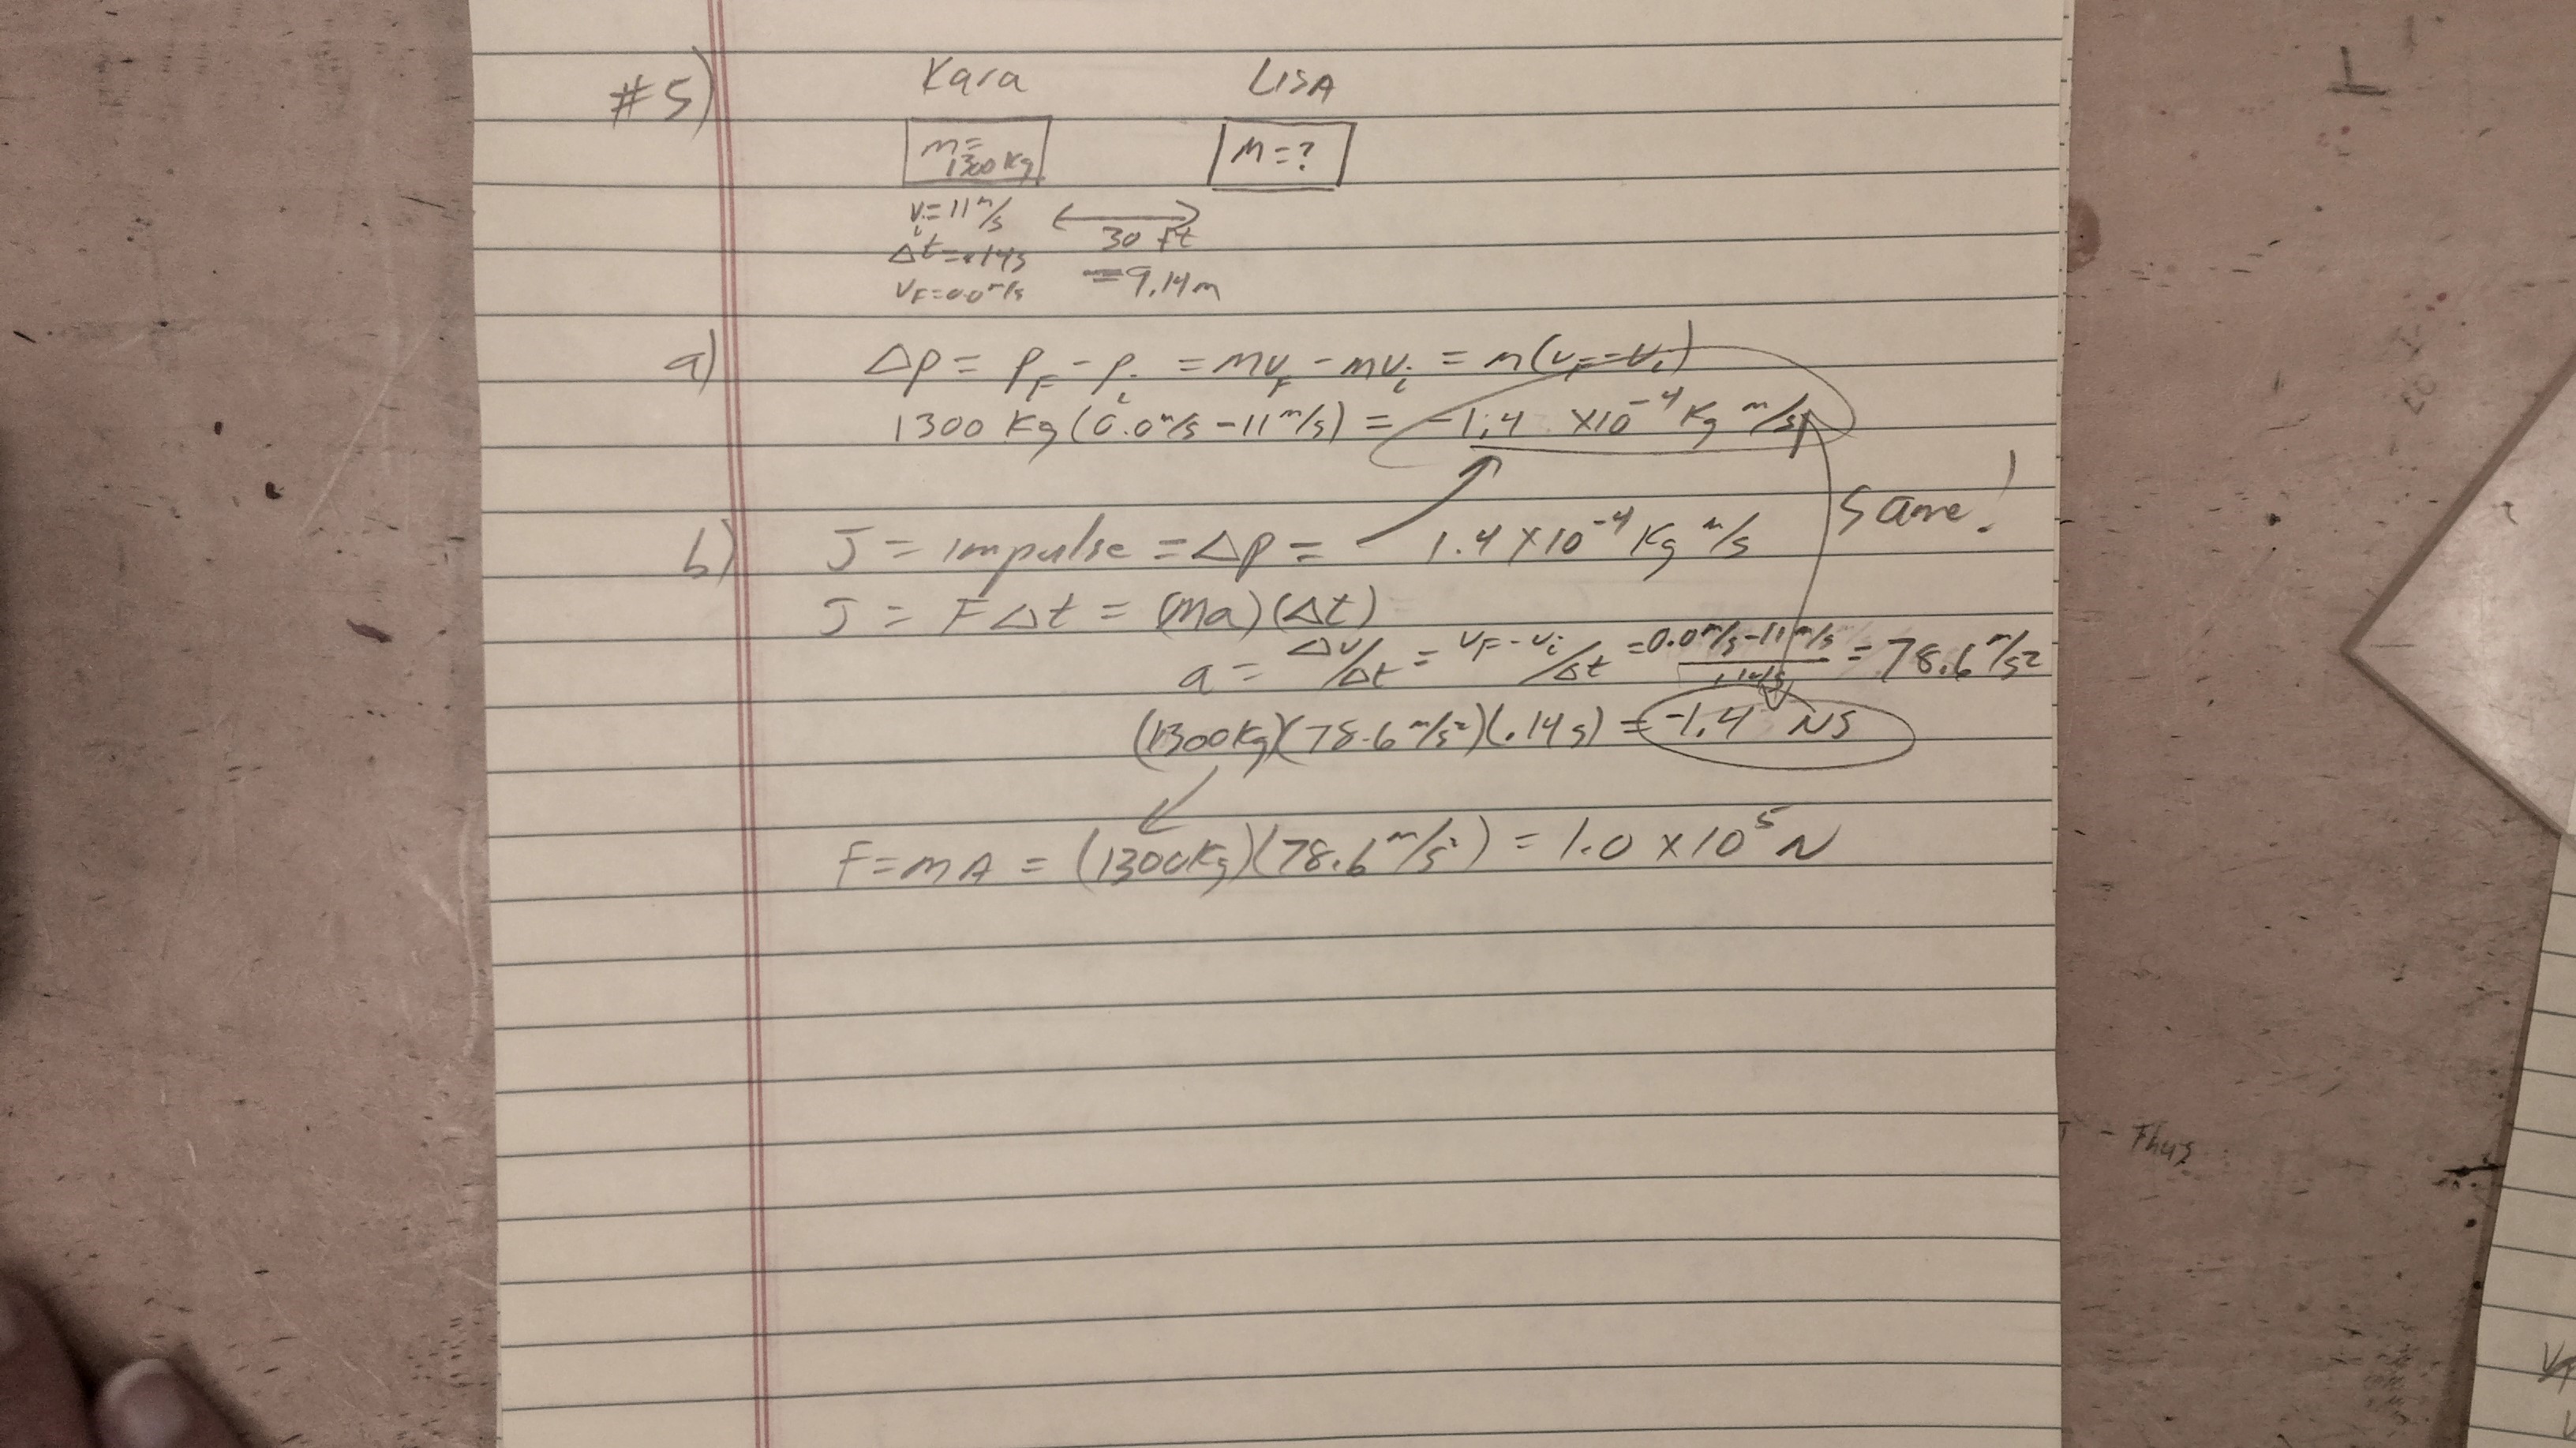 #5)
Kara LISA
m= 1300 Kg M=?
vi=11 m/s 30 ft
Δt=.14s =9.14m
VF=0.0 m/s
a) Δp = pF - pi = mvF - mvi = m(vF-vi)
1300 Kg (0.0 m/s -11 m/s) = -1.4 ×10⁻⁴ Kg m/s
Same!
b) J = impulse = Δp = - 1.4 ×10⁻⁴ Kg m/s
J = FΔt = (ma)(Δt)
a = Δv/Δt = vF-vi/Δt = 0.0 m/s-11 m/s / .14s = 78.6 m/s²
(1300Kg)(78.6 m/s²)(.14s) = -1.4 NS
F=mA = (1300Kg)(78.6 m/s²) = 1.0 ×10⁵ N
- Thus